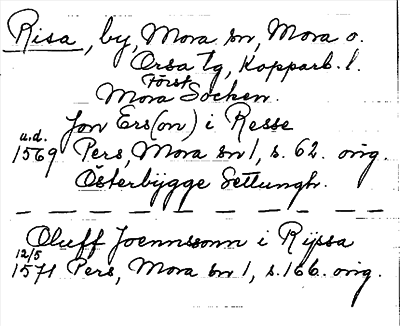 Risa, by, Mora sn, Mora o.
Orsa tg, Kopparb. l.
Först
Mora Socken.
Jon Ers(on) i Resse
u.d.
1569 Pers, Mora sn 1, s. 62. orig.
Österbygge Settungh.
Oluff Joennssonn i Ryssa
12/5
1571 Pers, Mora sn 1, s. 166. orig.